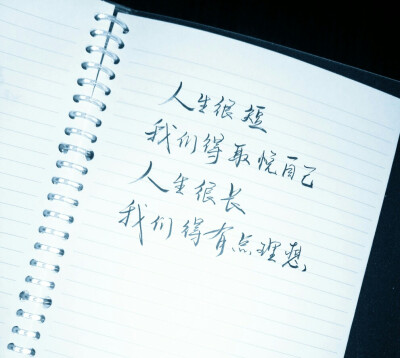 人生很短
我们得取悦自己
人生很长
我们得有点理想